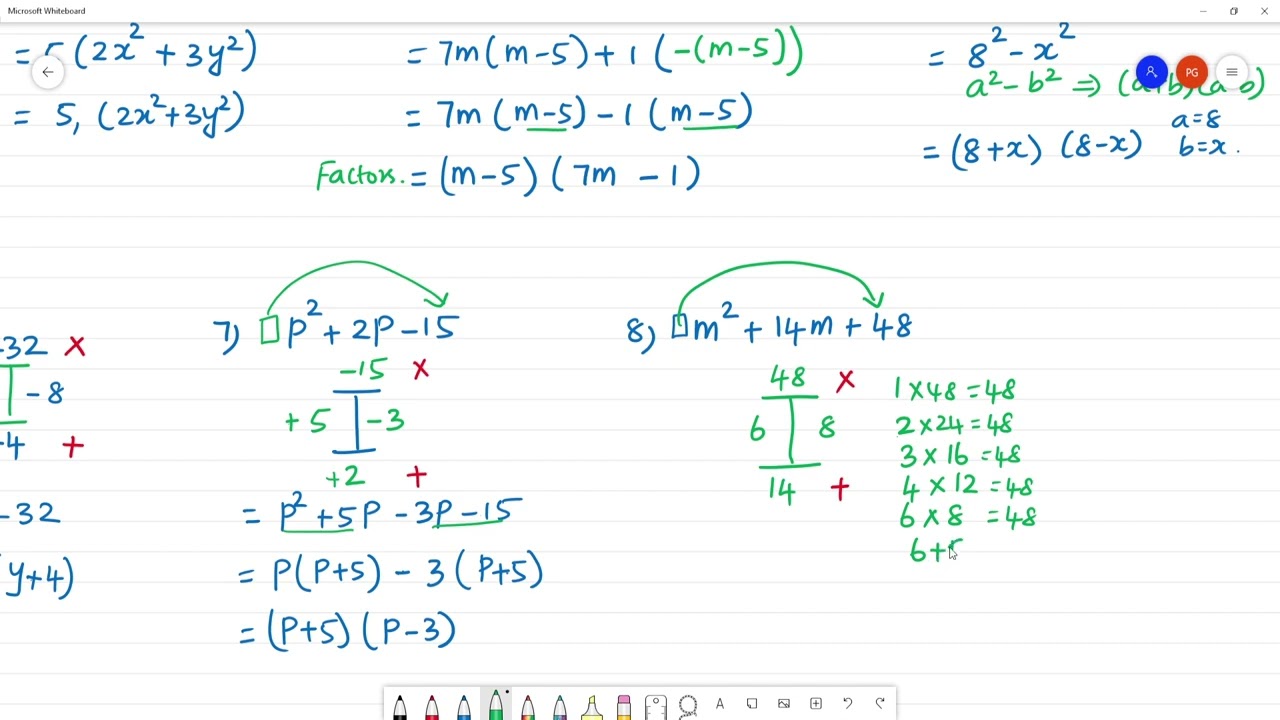 Microsoft Whiteboard
= 5 (2x² + 3y²)
= 5, (2x²+3y²)
= 7m(m-5) + 1 (-(m-5))
= 7m (m-5) - 1 (m-5)
Factors. = (m-5) ( 7m - 1)
= 8² - x²
a² - b² ⇒ (a+b)(a-b)
a=8
b=x.
= (8+x) (8-x)
PG
-32 ×
-8
-4 +
-32
(y+4)
7) □p² + 2p - 15
-15 ×
+5 -3
+2 +
= p² + 5p - 3p - 15
= p(p+5) - 3 (p+5)
= (p+5) (p-3)
8) □m² + 14m + 48
48 ×
6 8
14 +
1 × 48 = 48
2 × 24 = 48
3 × 16 = 48
4 × 12 = 48
6 × 8 = 48
6+
A